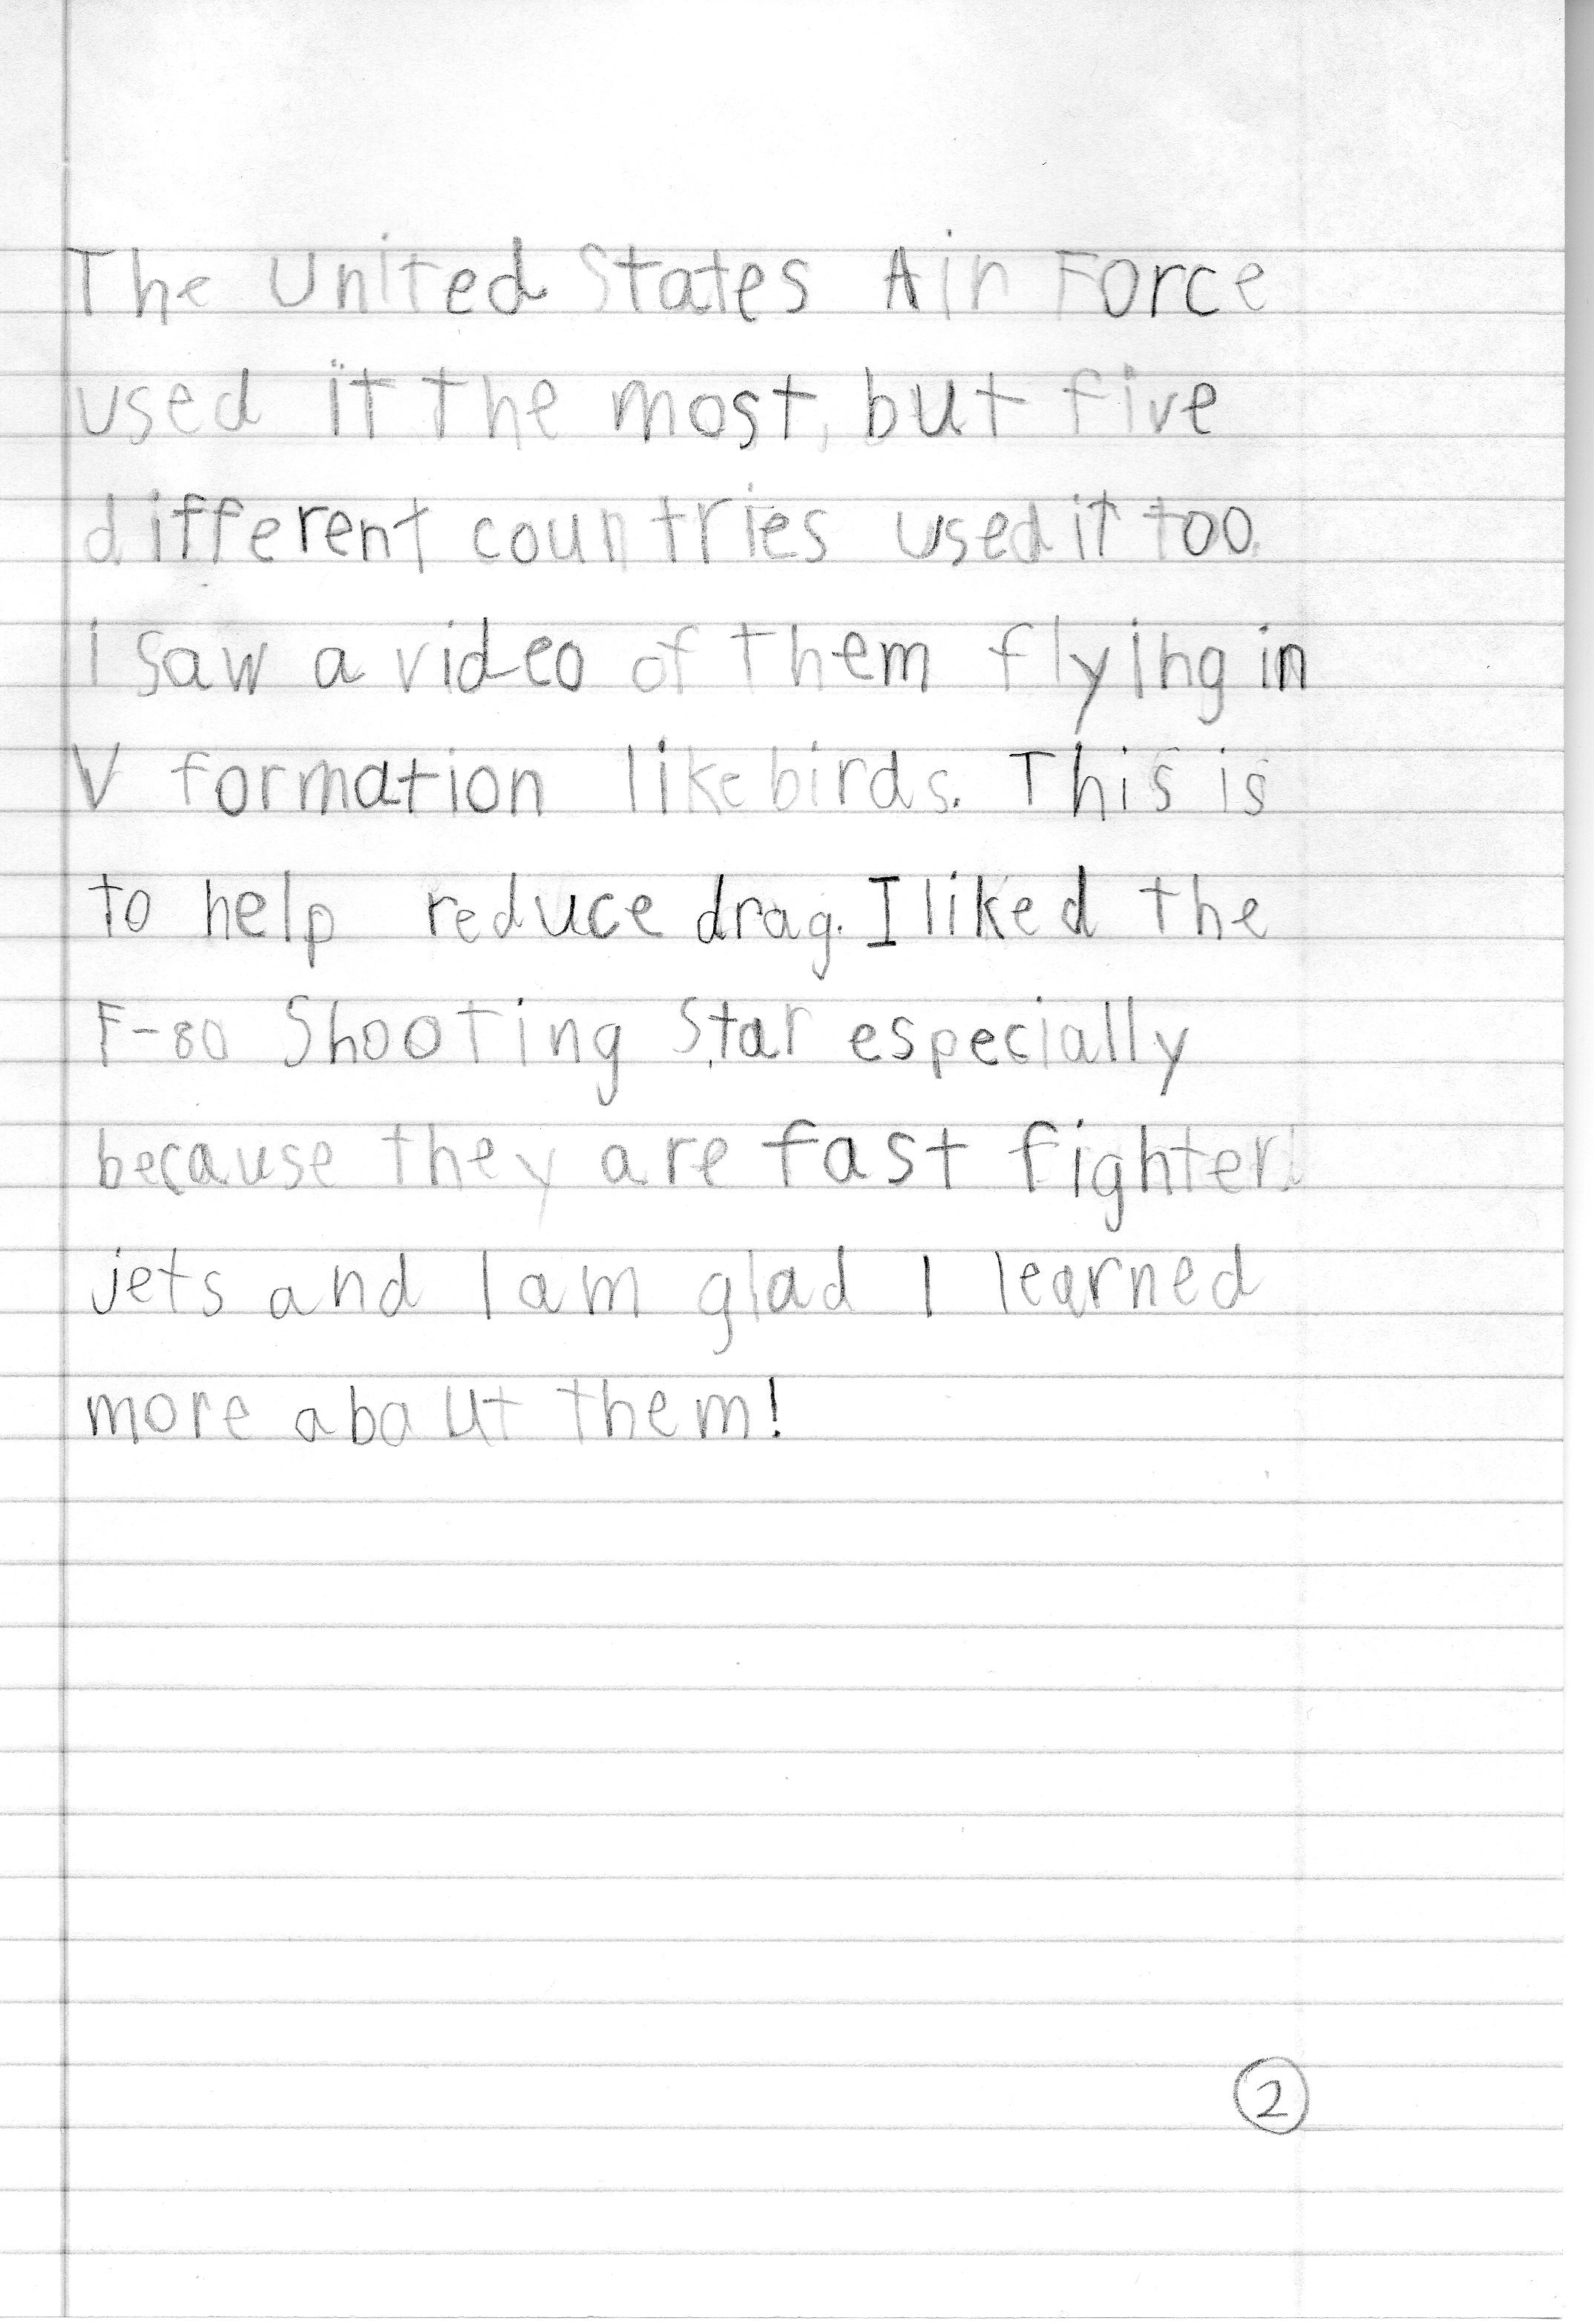 The United States Air Force
used it the most, but five
different countries used it too.
I saw a video of them flying in
V formation like birds. This is
to help reduce drag. I liked the
F-80 Shooting Star especially
because they are fast fighter
jets and I am glad I learned
more about them!
2